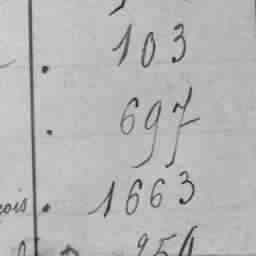 103
697
cois 1663